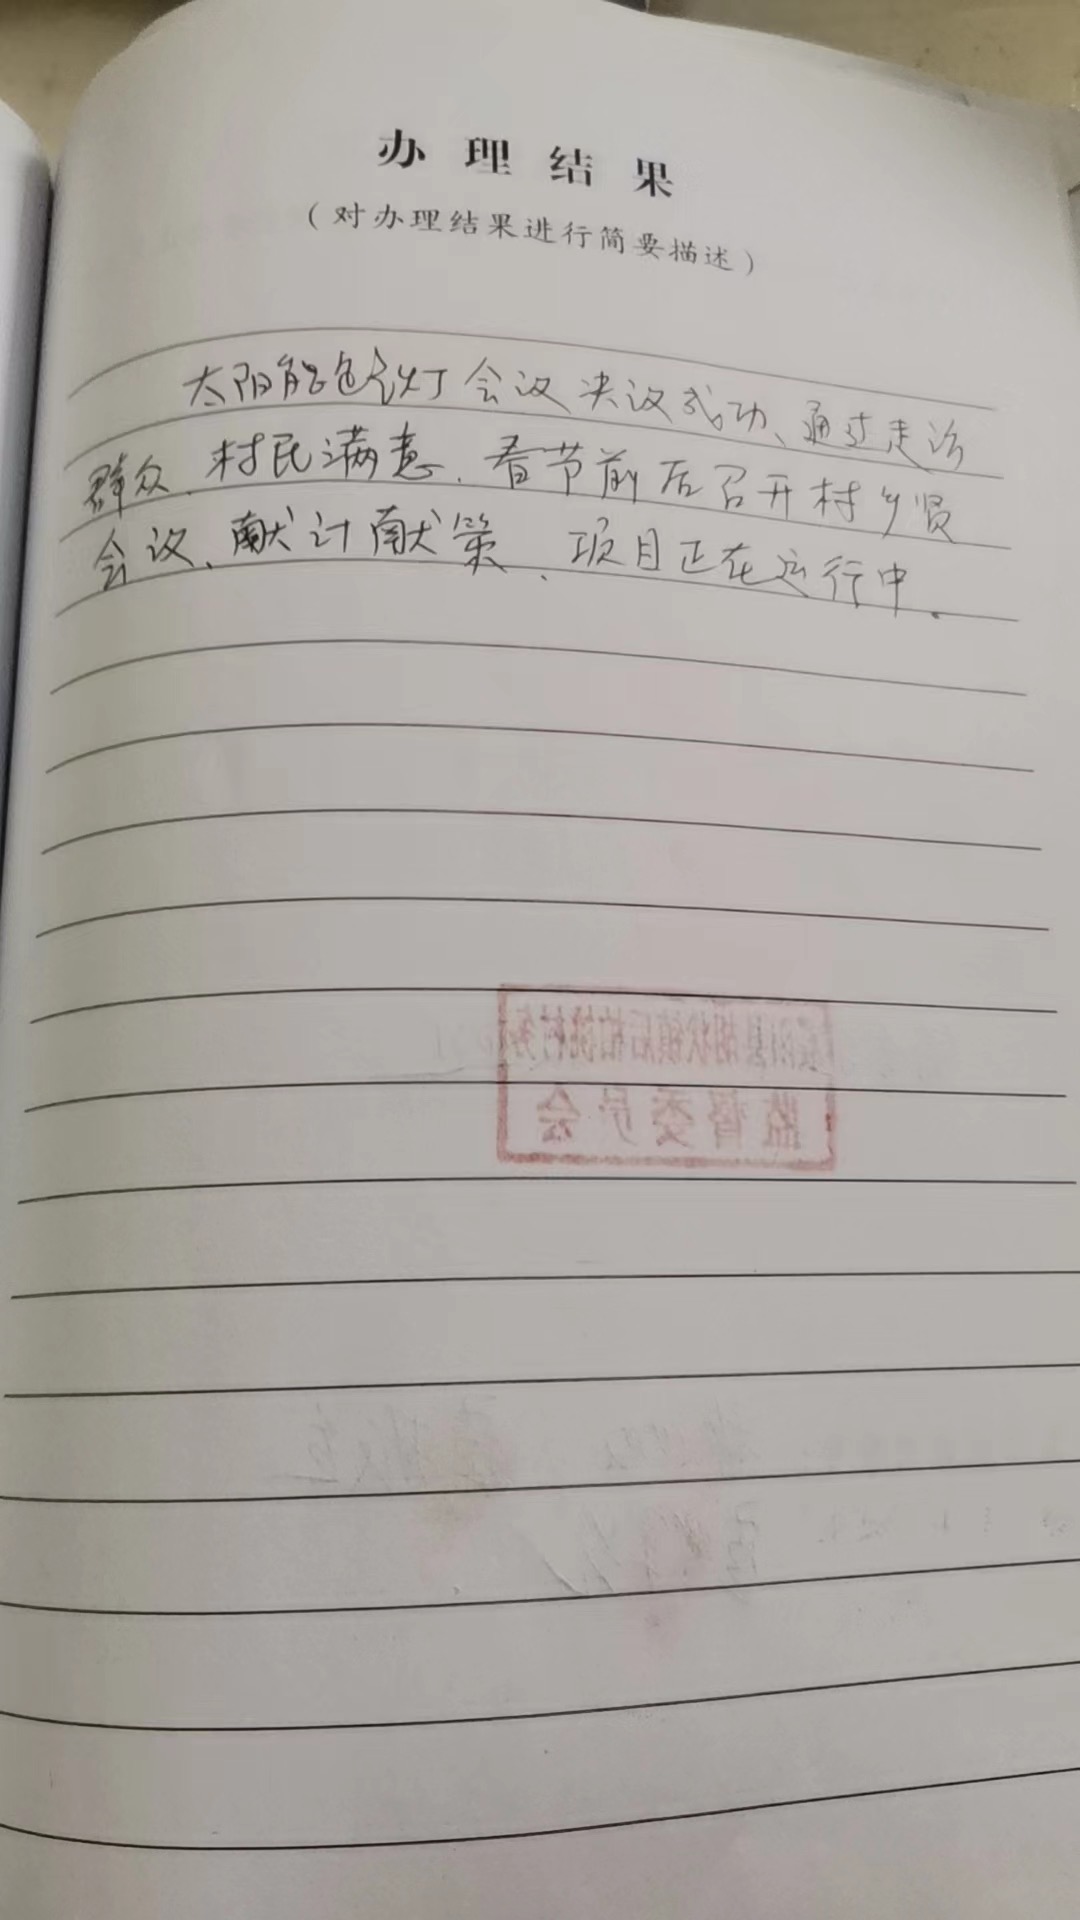 办理结果
（对办理结果进行简要描述）
太阳能色灯会议决议成功、通过走访
群众、村民满意、春节前后召开村乡贤
会议、献计献策、项目正在运行中.
监督委员会